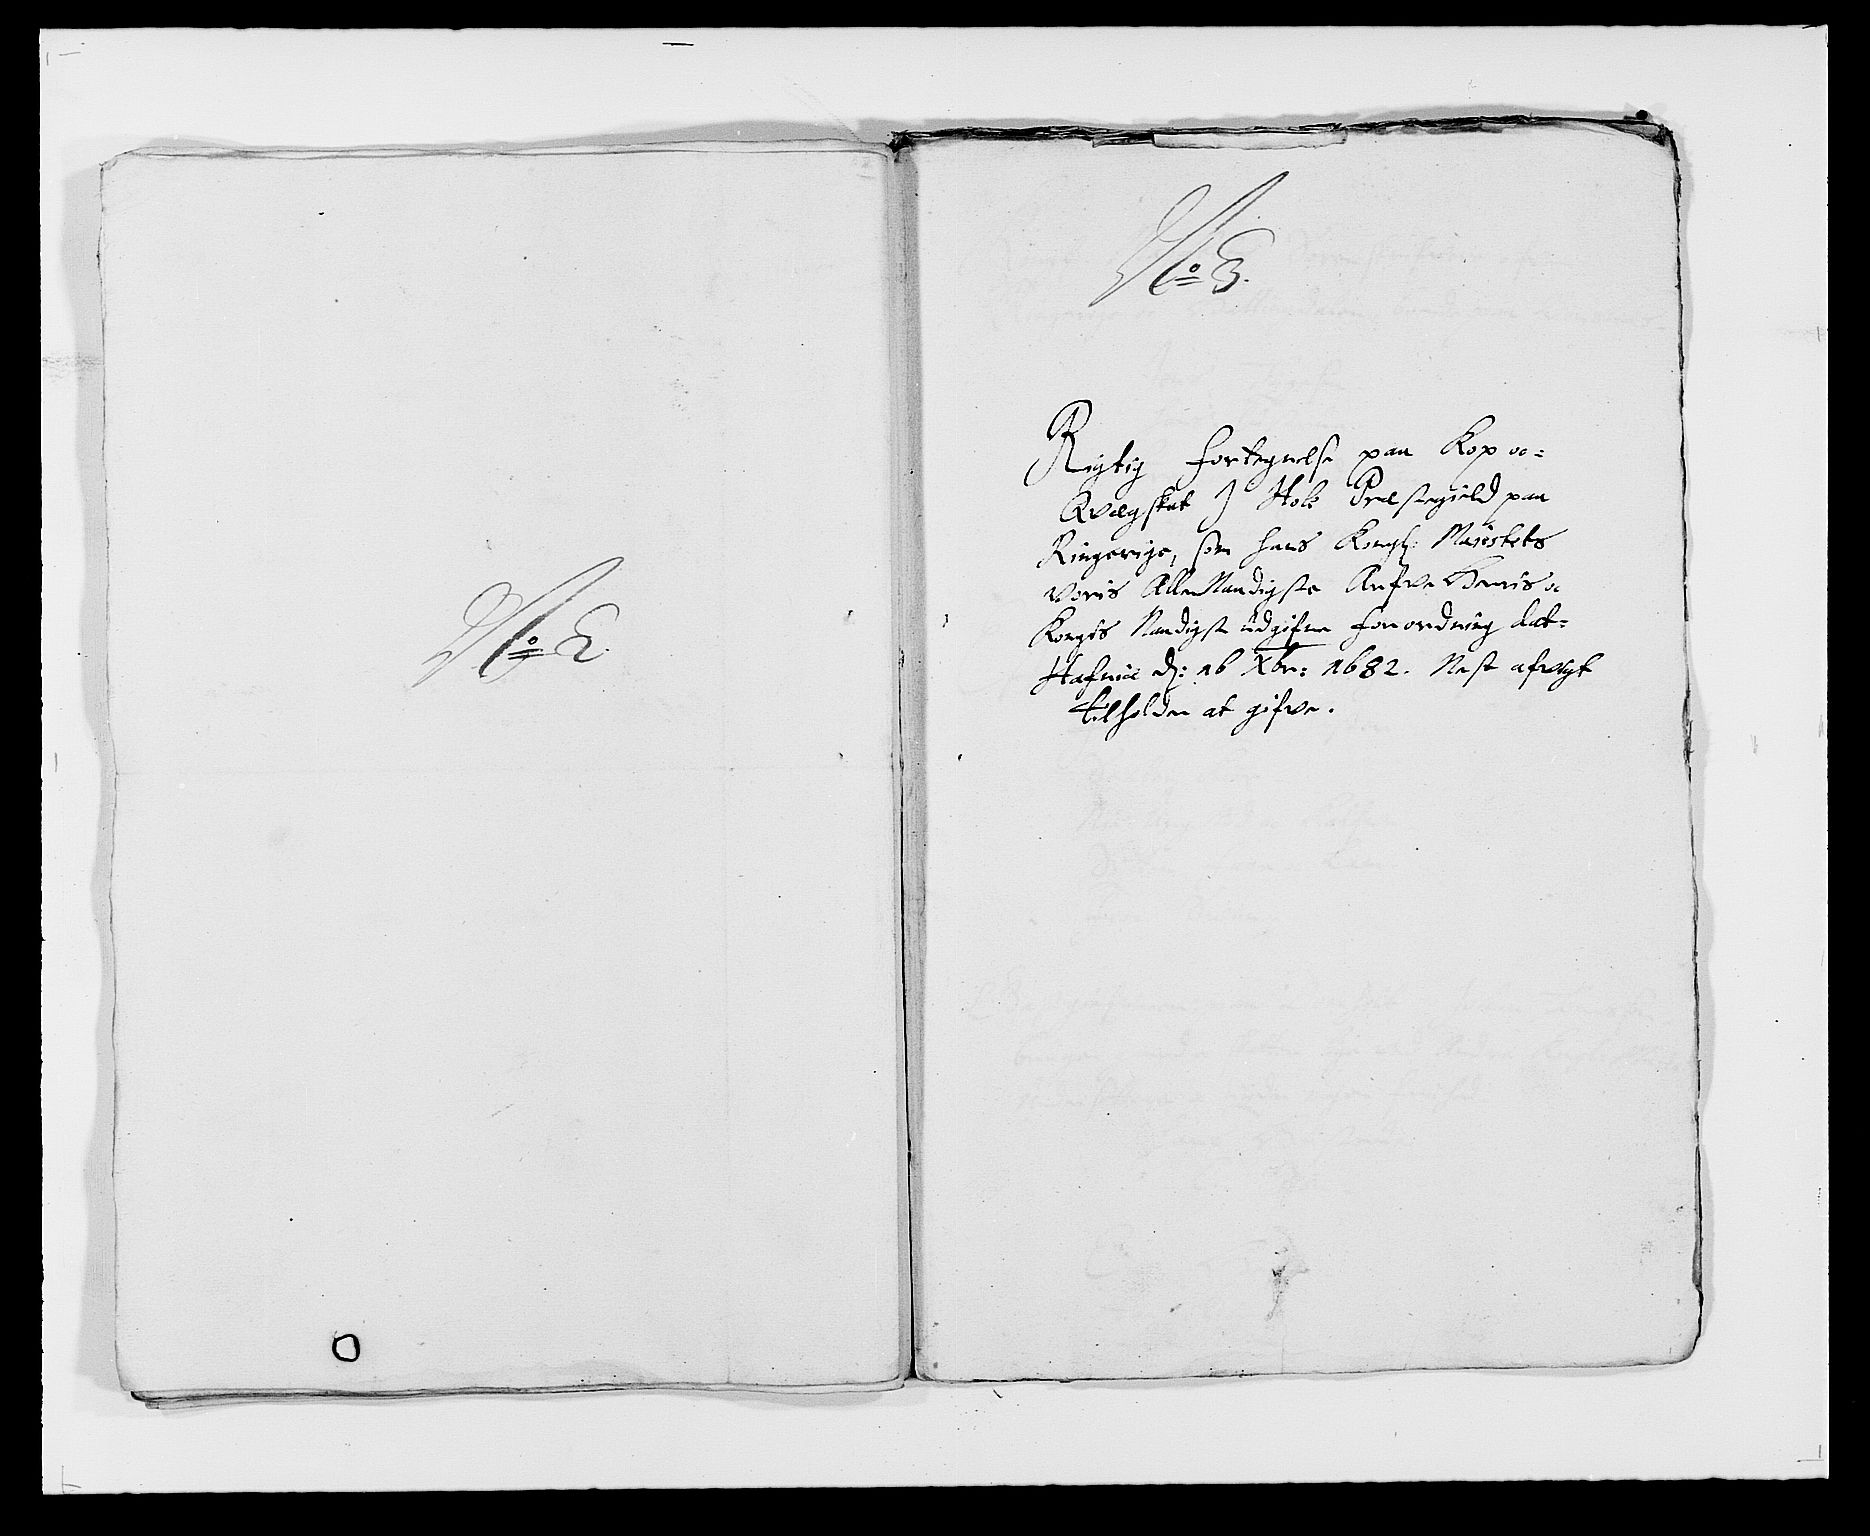 No 2.
No 3.
Rigtig fortegnelse paa Kop oc=
Qvægskat J Hole Præstegield paa
Ringerige, som hans Kongl: Mayestets
voris AllerNaadigste Arfve Herris oc
Kongis Naadigst udgifne forordning dat=
Hafniæ d: 16 Xbr: 1682. Nest afvigt
tilholder at gifve.